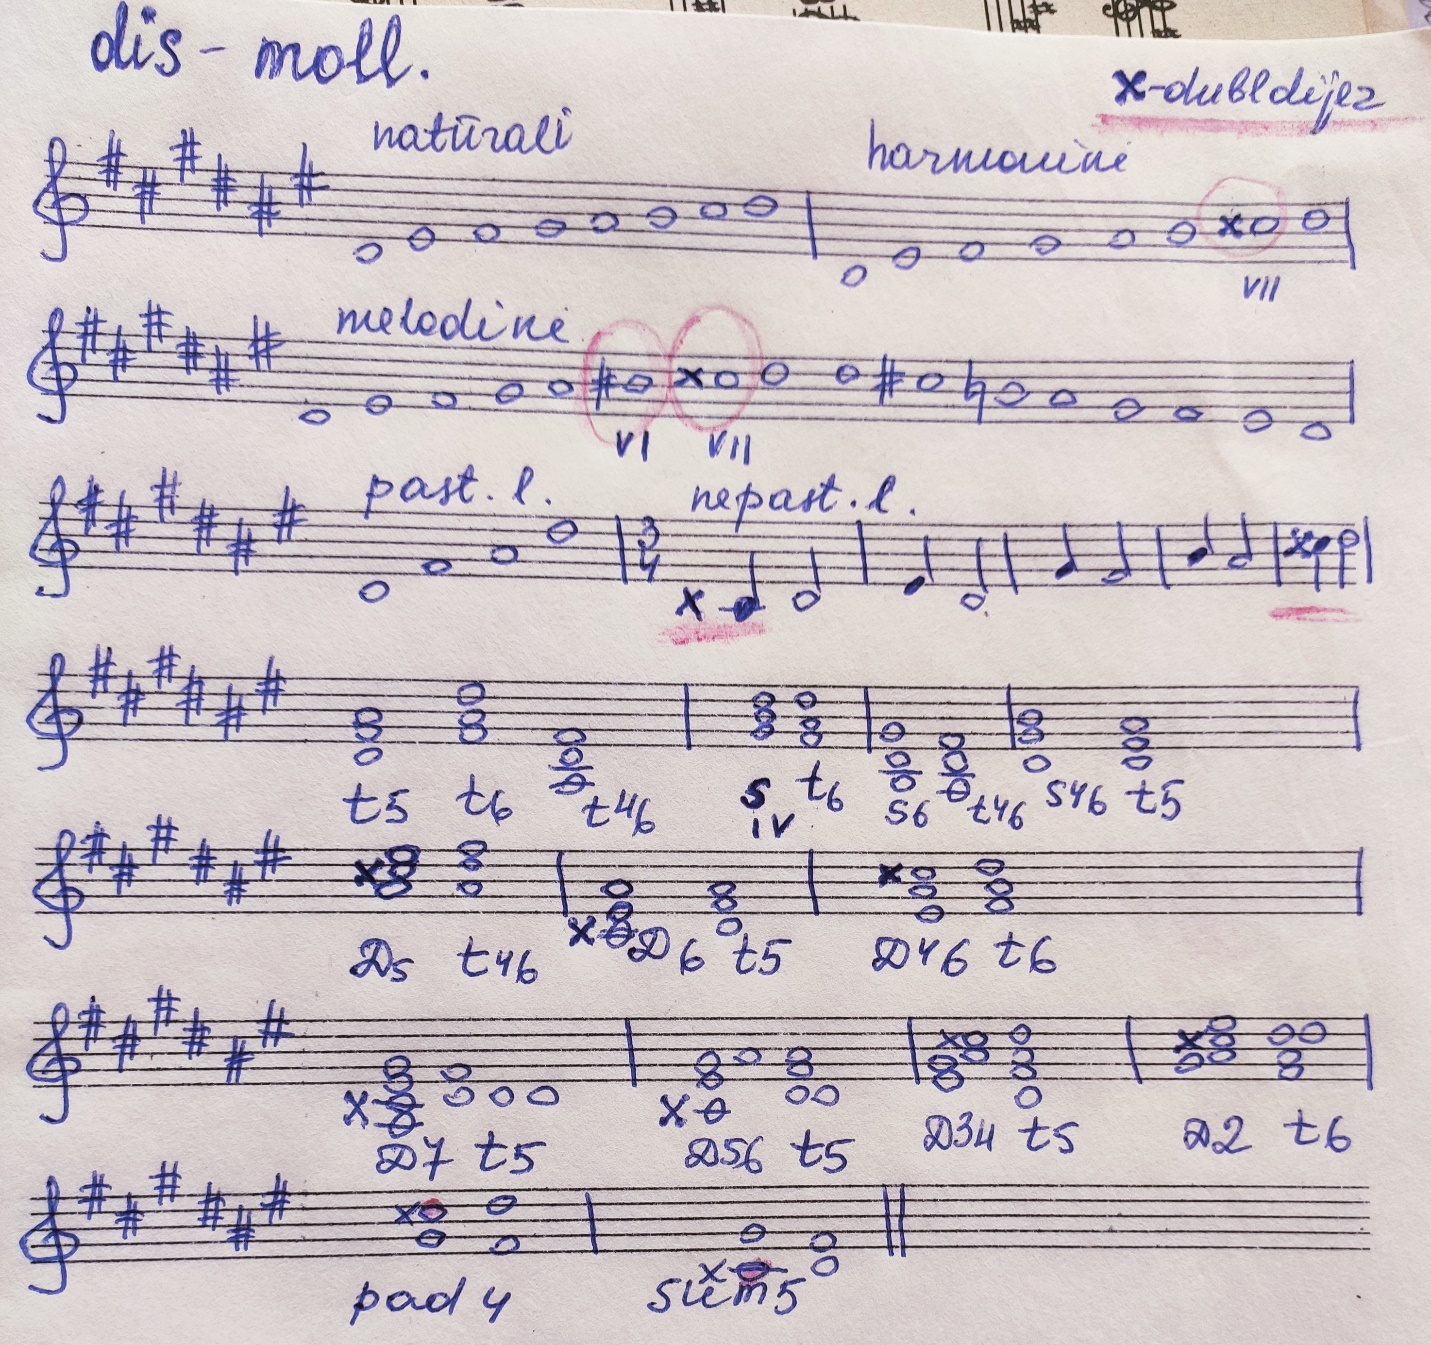 dis - moll.
x-dubldijez
natūrali
harmoninė
VII
melodinė
VI VII
past. l. nepast. l.
3
4
t5 t6 t46 s t6 s6 t46 s46 t5
IV
D5 t46 D6 t5 D46 t6
D7 t5 D56 t5 D34 t5 D2 t6
pad 4 sum5